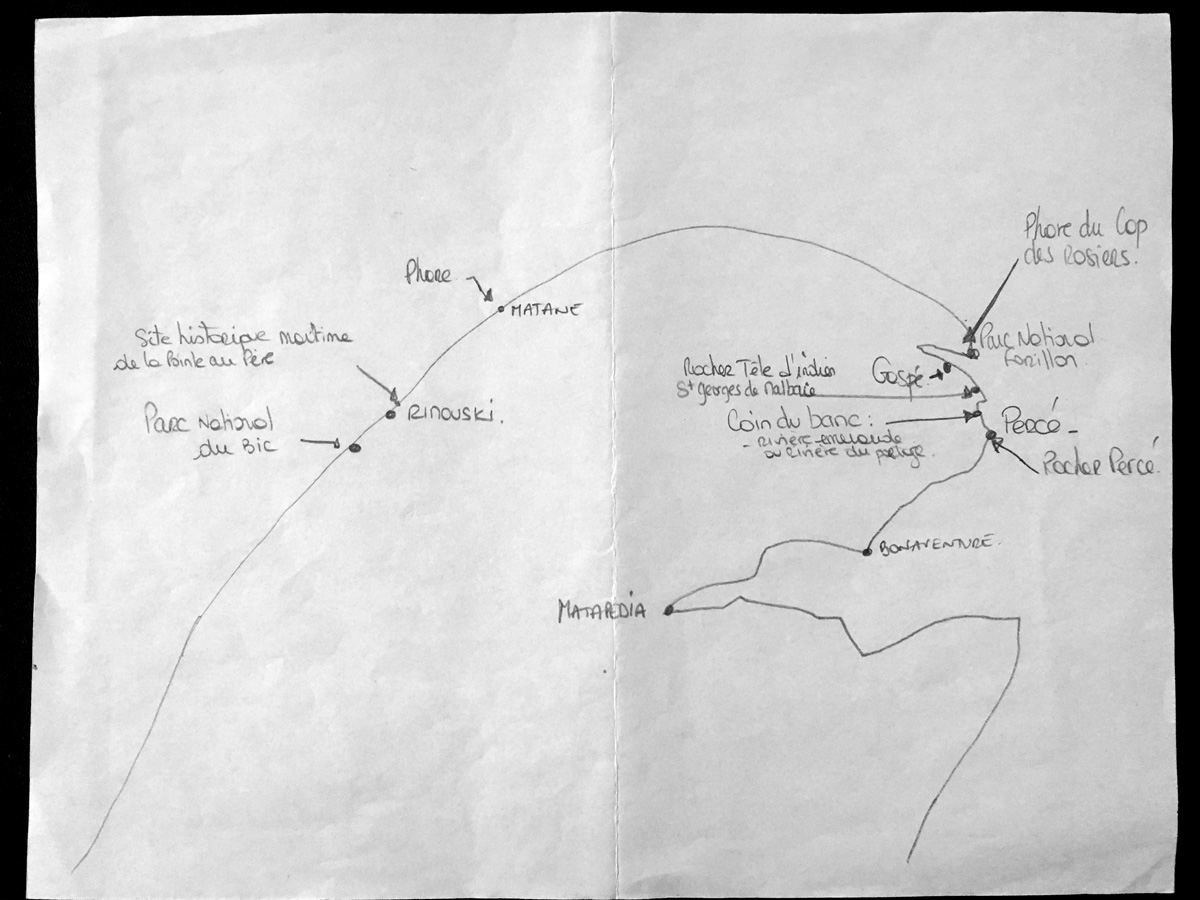 Phare
MATANE
Site historique maritime
de la Pointe au Père
RIMOUSKI.
Parc National
du Bic
Phare du Cap
des Rosiers.
Parc National
Forillon
Gaspé.
Rocher Tête d'indien
St georges de Malbaie
Coin du banc :
- rivière émeraude
ou rivière du portage.
Percé -
Rocher Percé
BONAVENTURE.
MATAPEDIA